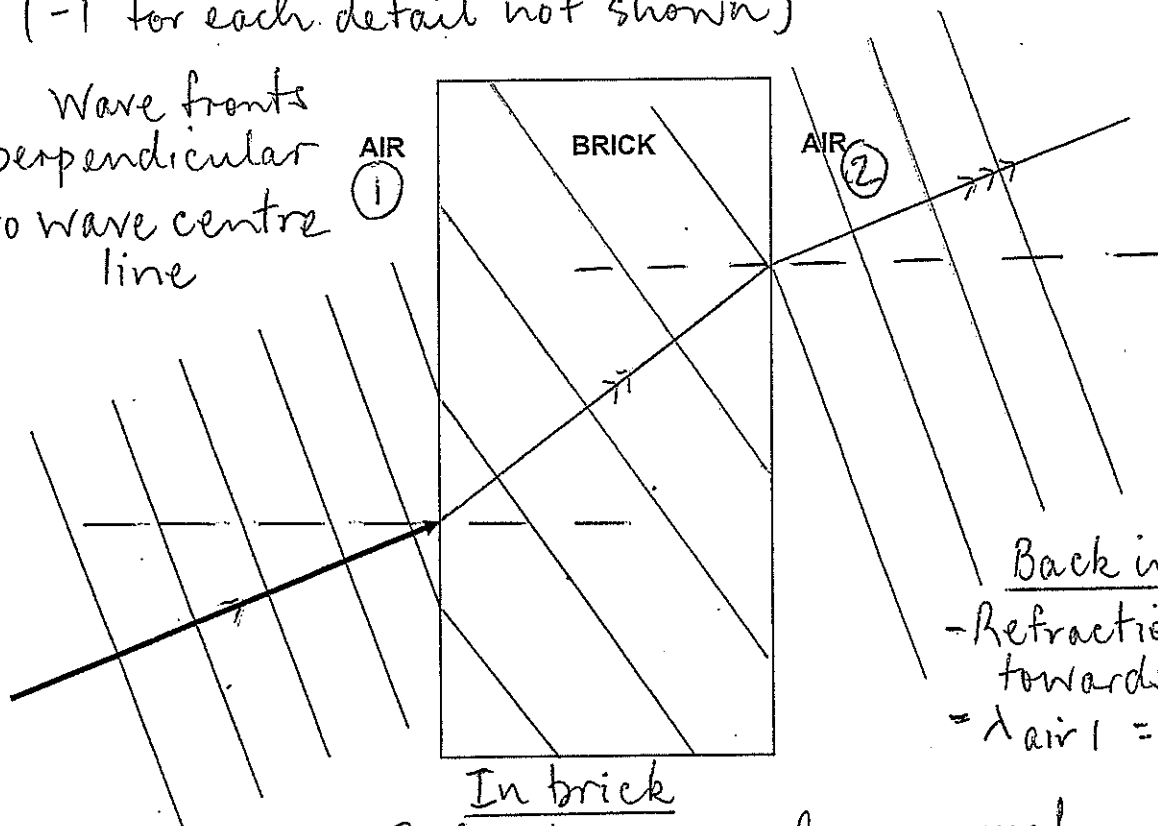 (-1 for each detail not shown)
Wave fronts
perpendicular
to wave centre
line
AIR
1
BRICK
AIR
2
Back
-
towards
= λ air 1 =
In brick